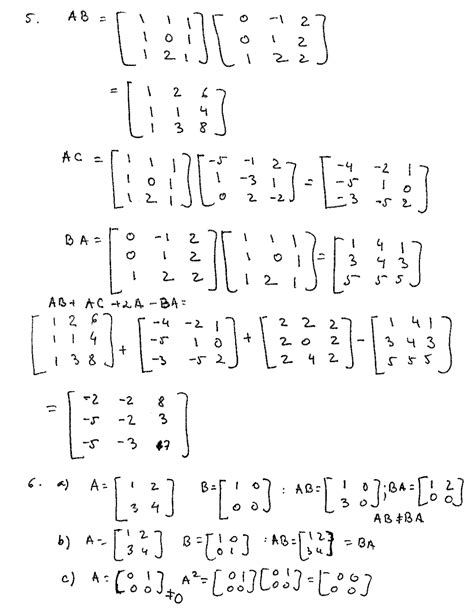 5. AB = [1 1 1; 1 0 1; 1 2 1] [0 -1 2; 0 1 2; 1 2 2]
= [1 2 6; 1 1 4; 1 3 8]
AC = [1 1 1; 1 0 1; 1 2 1] [-5 -1 2; 1 -3 1; 0 2 -2] = [-4 -2 1; -5 1 0; -3 -5 2]
BA = [0 -1 2; 0 1 2; 1 2 2] [1 1 1; 1 0 1; 1 2 1] = [1 4 1; 3 4 3; 5 5 5]
AB + AC + 2A - BA =
[1 2 6; 1 1 4; 1 3 8] + [-4 -2 1; -5 1 0; -3 -5 2] + [2 2 2; 2 0 2; 2 4 2] - [1 4 1; 3 4 3; 5 5 5]
= [-2 -2 8; -5 -2 3; -5 -3 7]
6. a) A = [1 2; 3 4] B = [1 0; 0 0] : AB = [1 0; 3 0]; BA = [1 2; 0 0]
AB ≠ BA
b) A = [1 2; 3 4] B = [1 0; 0 1] : AB = [1 2; 3 4] = BA
c) A = [0 1; 0 0] ≠ 0 A² = [0 1; 0 0] [0 1; 0 0] = [0 0; 0 0]